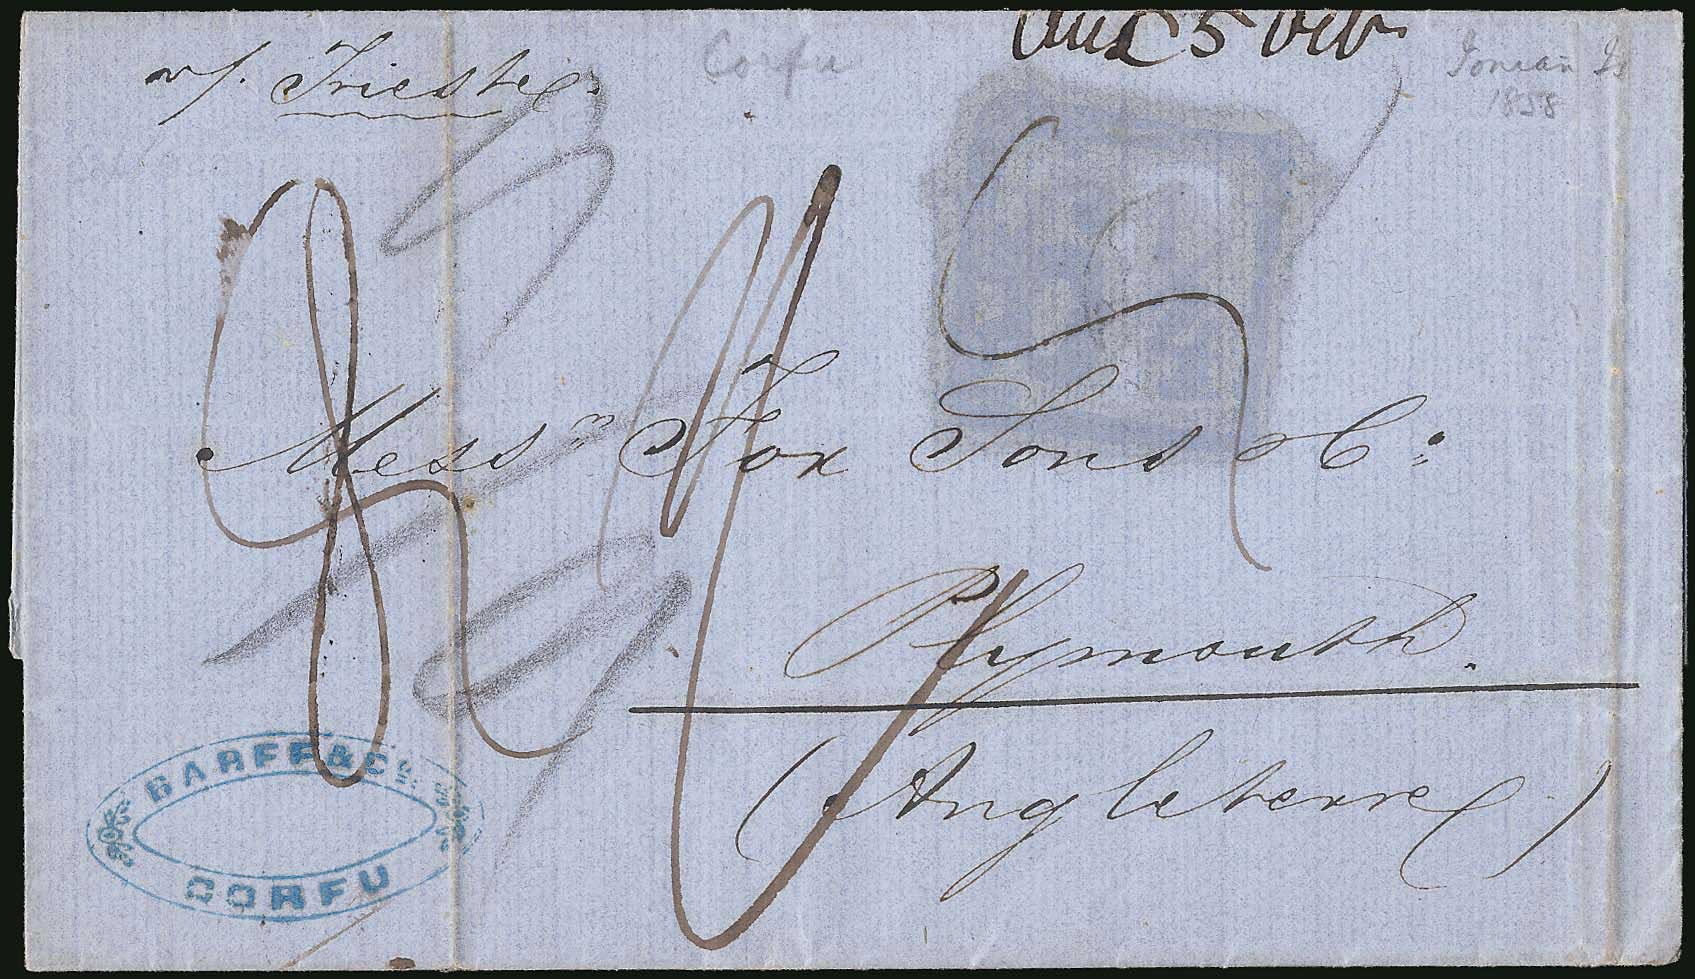 v/. Trieste
Corfu
Ionian Is
1858
Mess rs Fox Sons & Co:
Plymouth.
(Angleterre)
BARFF & Co.
CORFU